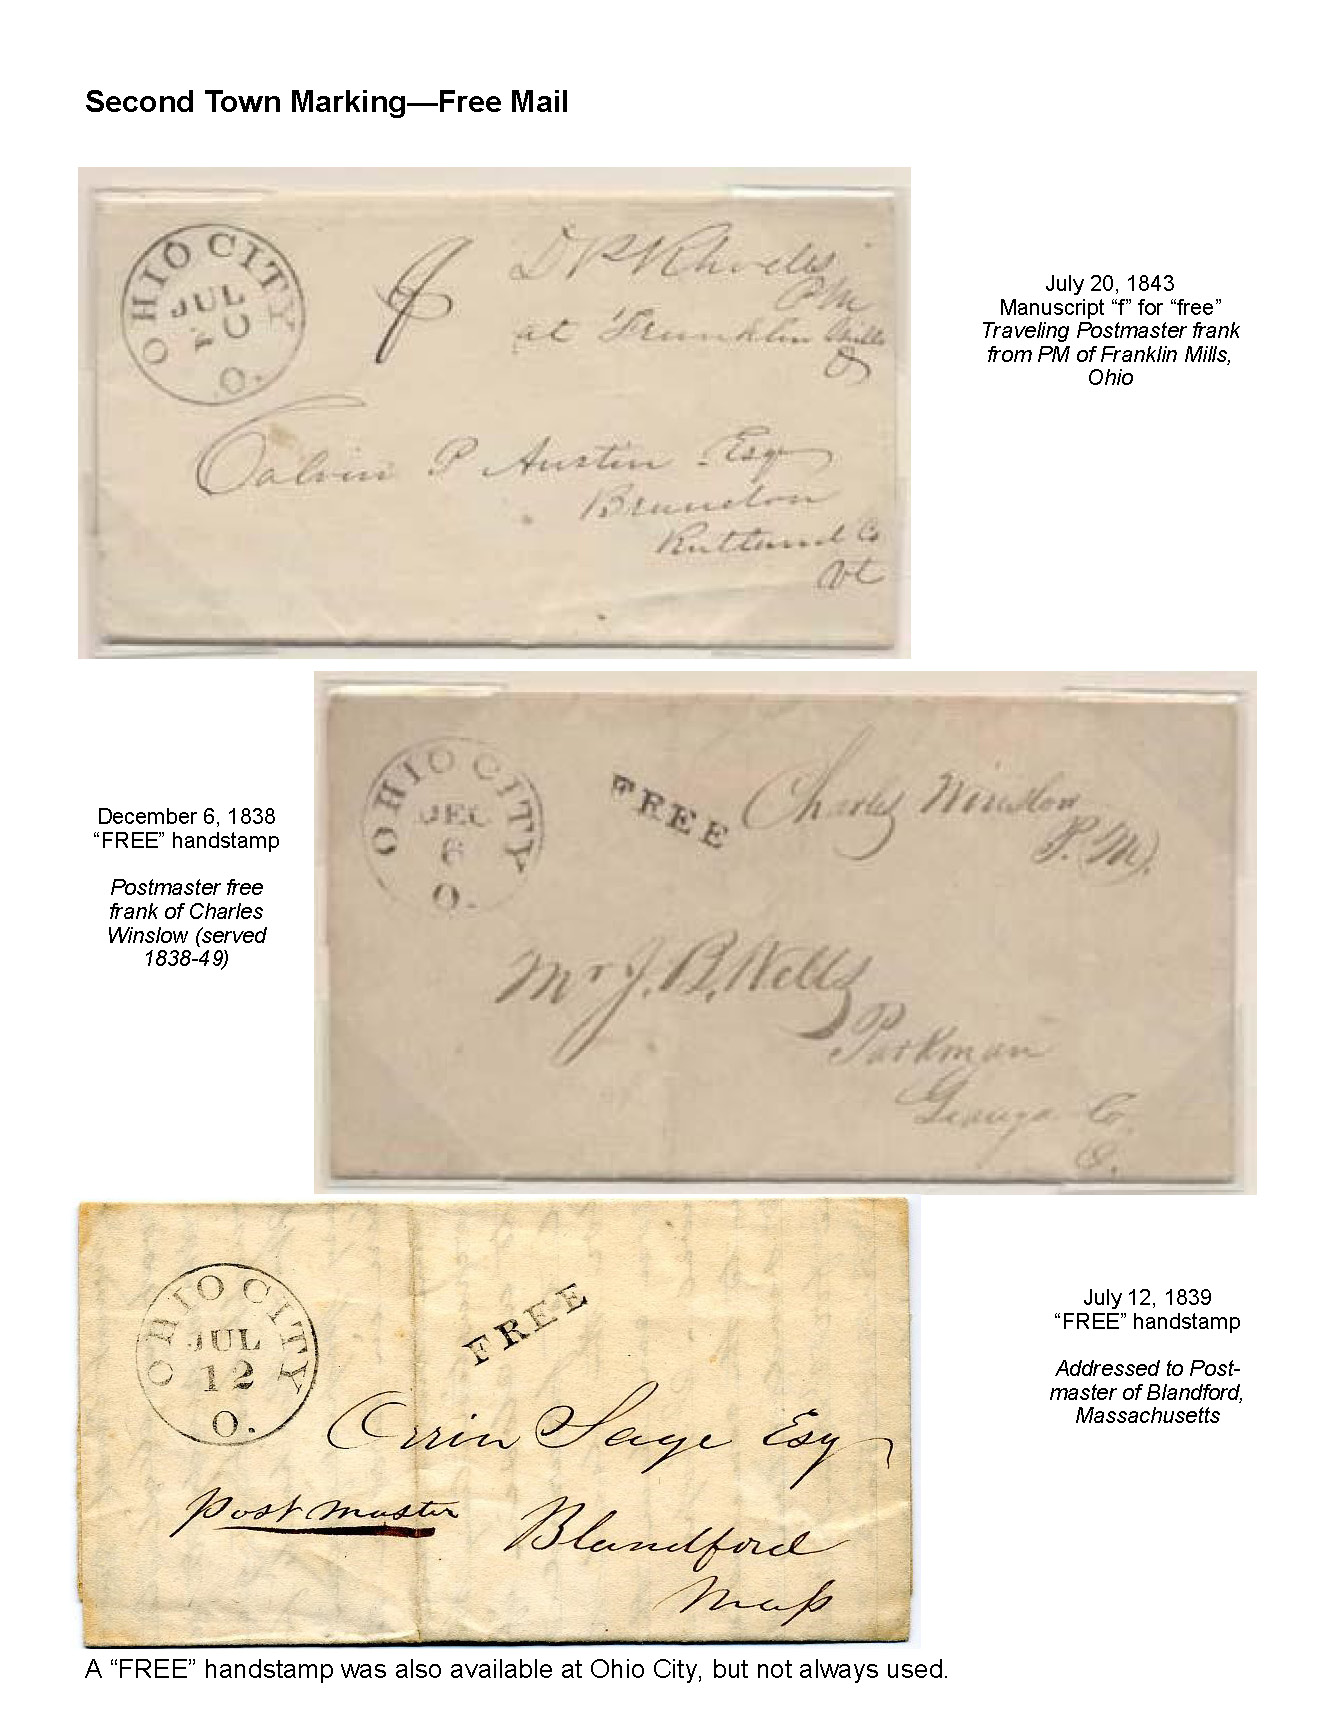 Second Town Marking—Free Mail
OHIO CITY
JUL
20
O.
f
D P Rhodes
PM
at Franklin Mills
O
Calvin P Austin Esq
Brandon
Rutland Co
Vt
July 20, 1843
Manuscript “f” for “free”
Traveling Postmaster frank
from PM of Franklin Mills,
Ohio
December 6, 1838
“FREE” handstamp
Postmaster free
frank of Charles
Winslow (served
1838-49)
OHIO CITY
DEC
6
O.
FREE
Charles Winslow
P.M.
Mr J. B. Wells
Parkman
Geauga Co.
O.
OHIO CITY
JUL
12
O.
FREE
Orrin Sage Esq
Post master
Blandford
Mass
July 12, 1839
“FREE” handstamp
Addressed to Post-
master of Blandford,
Massachusetts
A “FREE” handstamp was also available at Ohio City, but not always used.